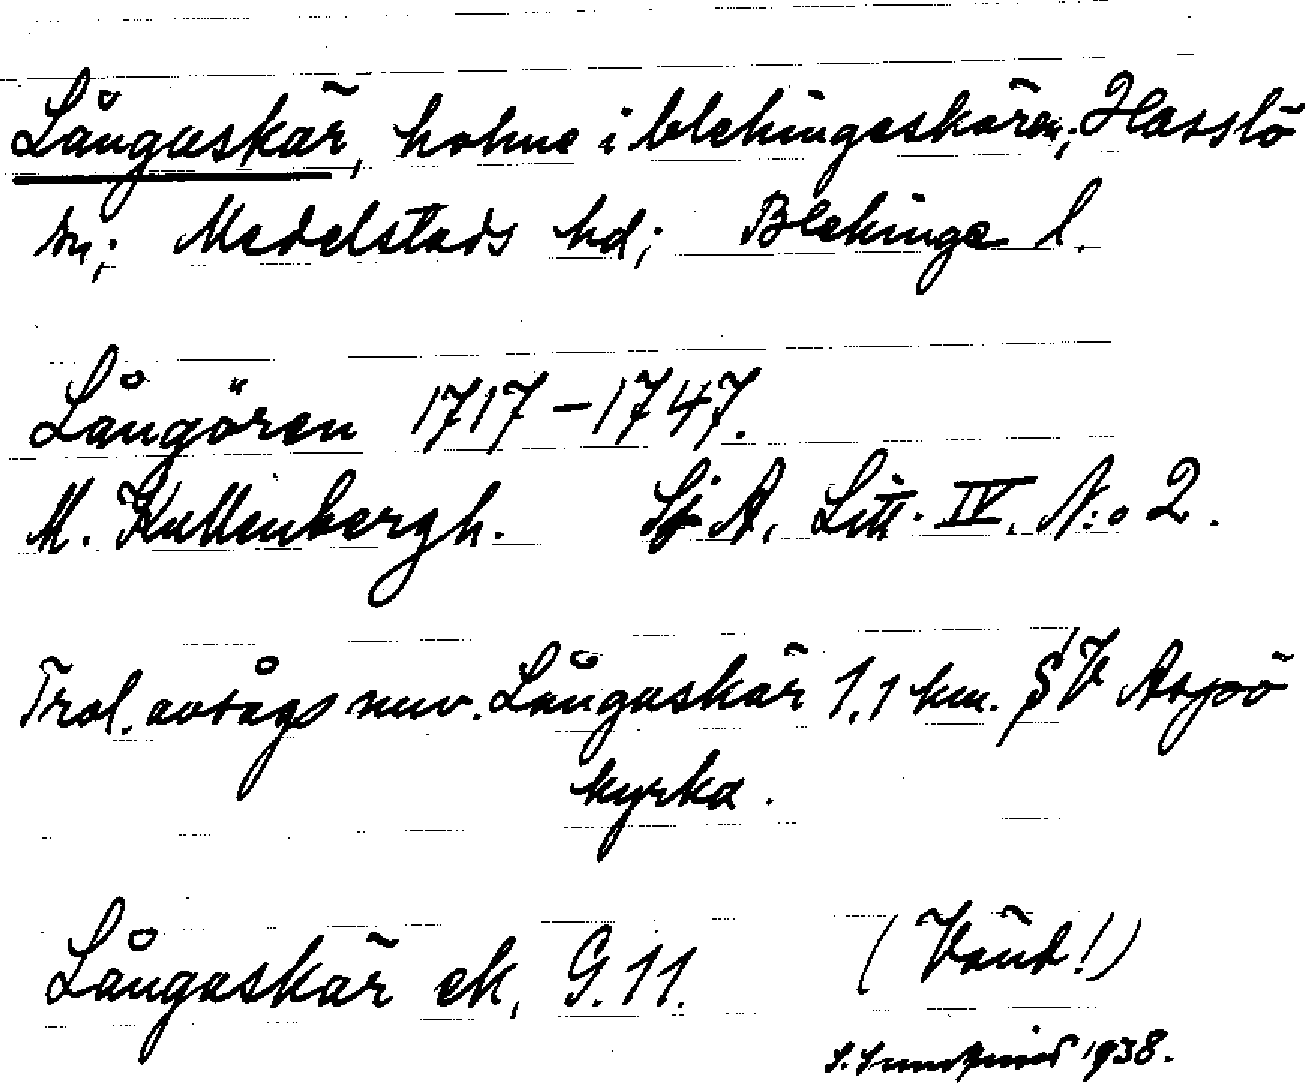 Långaskär, holme i blekingeskären; Hasslö
sn; Medelstads hd; Blekinge l.
Långören 1717-1747.
M. Kullenbergh. Sj A, Litt. IV. N:o 2.
Trol. avsågs nuv. Långaskär 1,1 km. SV Aspö
kyrka.
Långaskär ek, G. 11. (Vänd!)
1938.